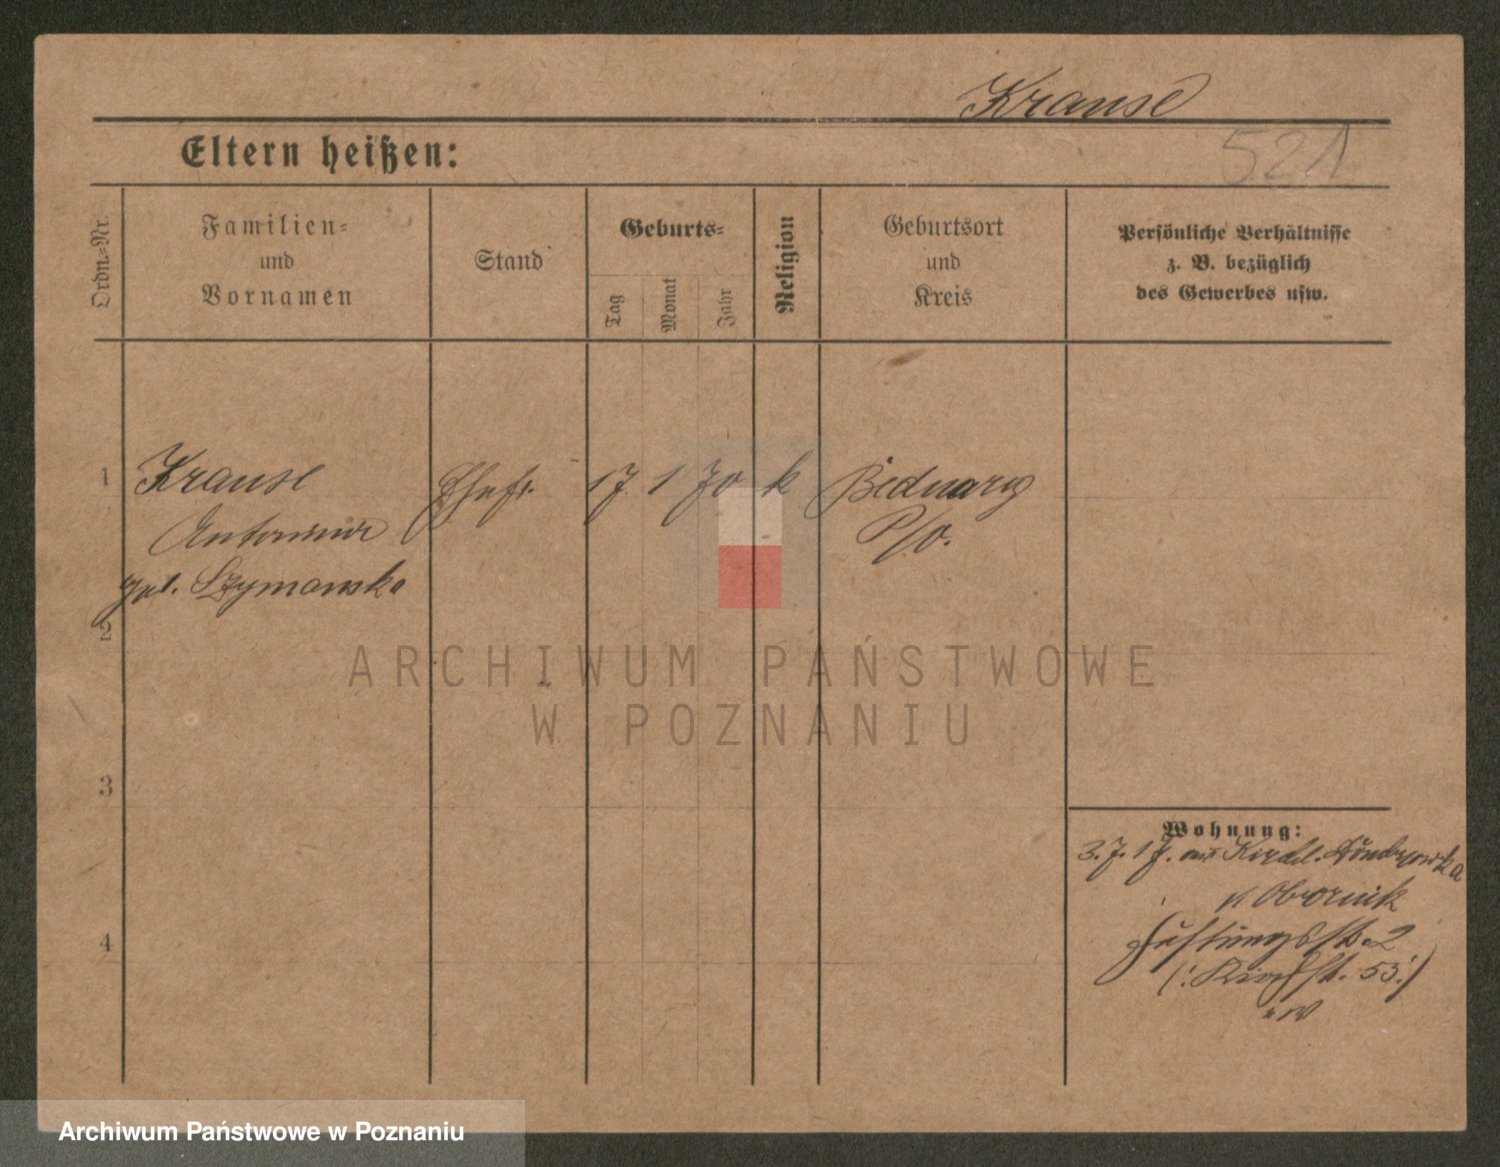 Krause
521
Eltern heißen:
Ordn.-Nr.
Familien-
und
Vornamen
Stand
Geburts-
Tag
Monat
Jahr
Religion
Geburtsort
und
Kreis
Persönliche Verhältnisse
z. B. bezüglich
des Gewerbes usw.
1 Krause Ehefr. 17 1 70 k Bednary
Antonina P/O.
geb. Szymanska
2
3
4
Wohnung:
3. 7. 17.
Obornik
2
(: Kirchst. 53 :)
ARCHIWUM PAŃSTWOWE
W POZNANIU
Archiwum Państwowe w Poznaniu